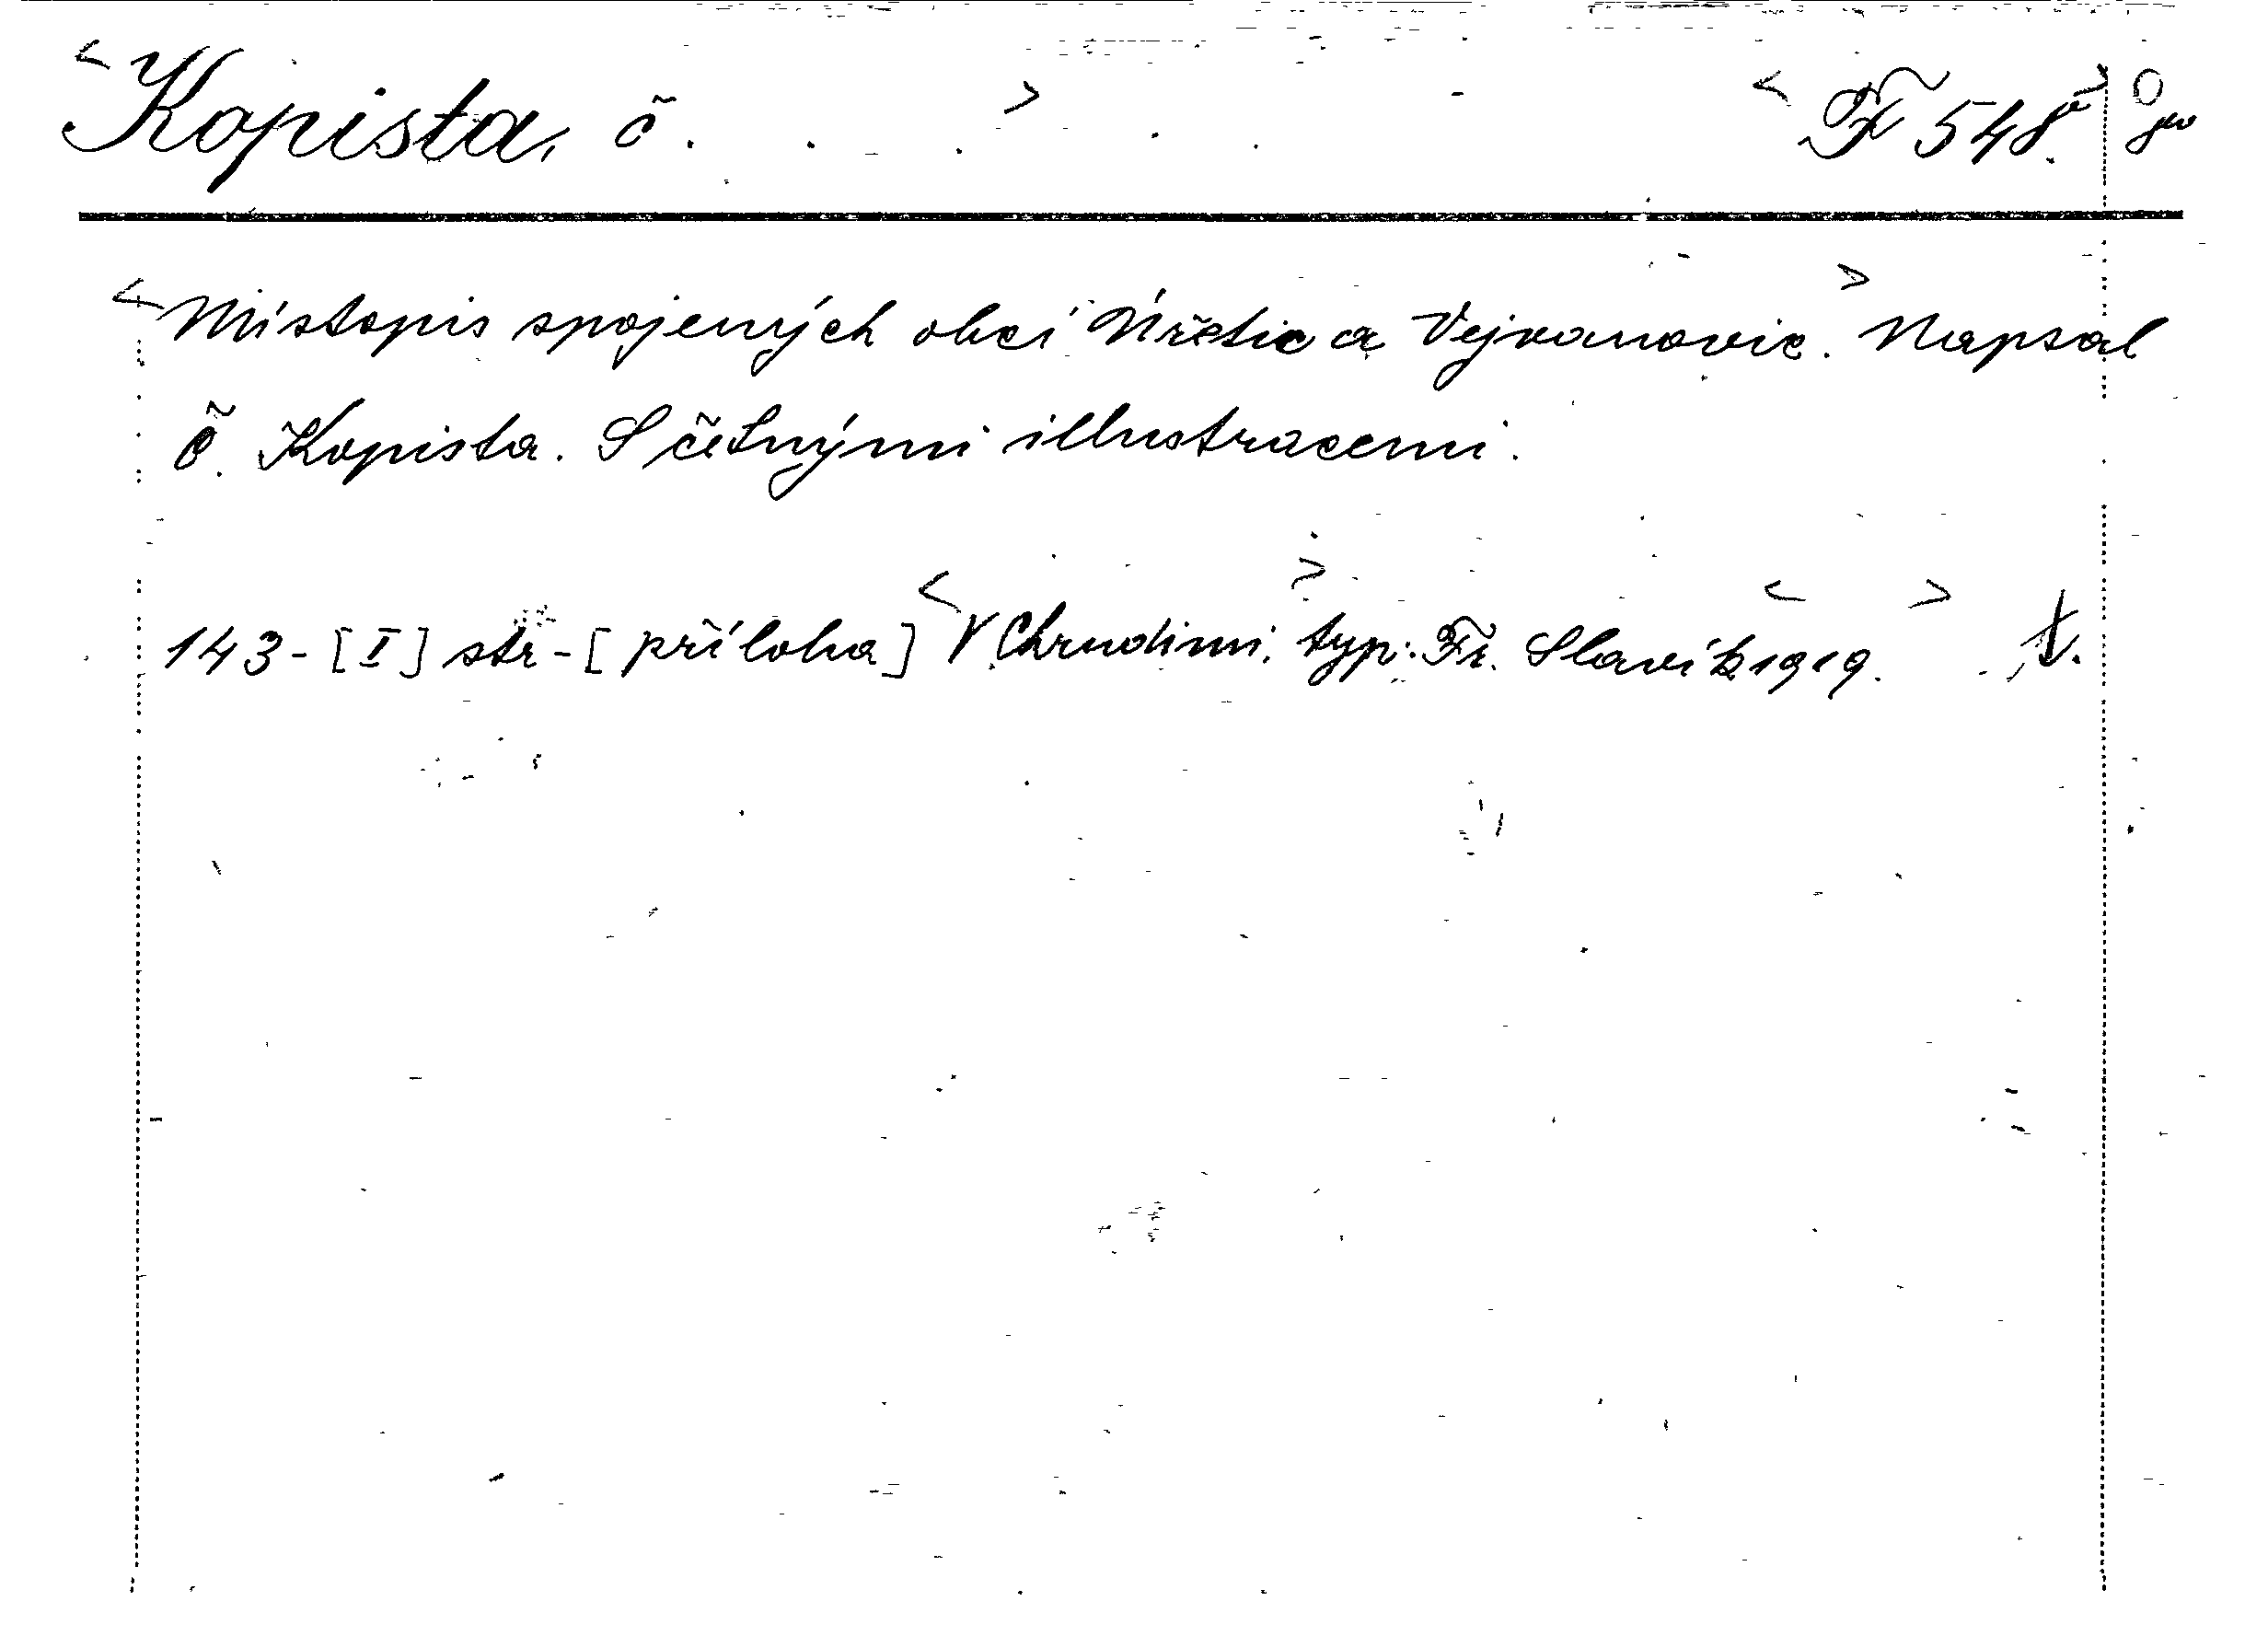 <Kopista, Č. > <F 548>
<Místopis spojených obcí Úřetic a Vejvanovic.> Napsal
Č. Kopista. S četnými illustracemi.
143-[I] str-[příloha] <V Chrudimi,> typ: Fr. Slavík <1919.>